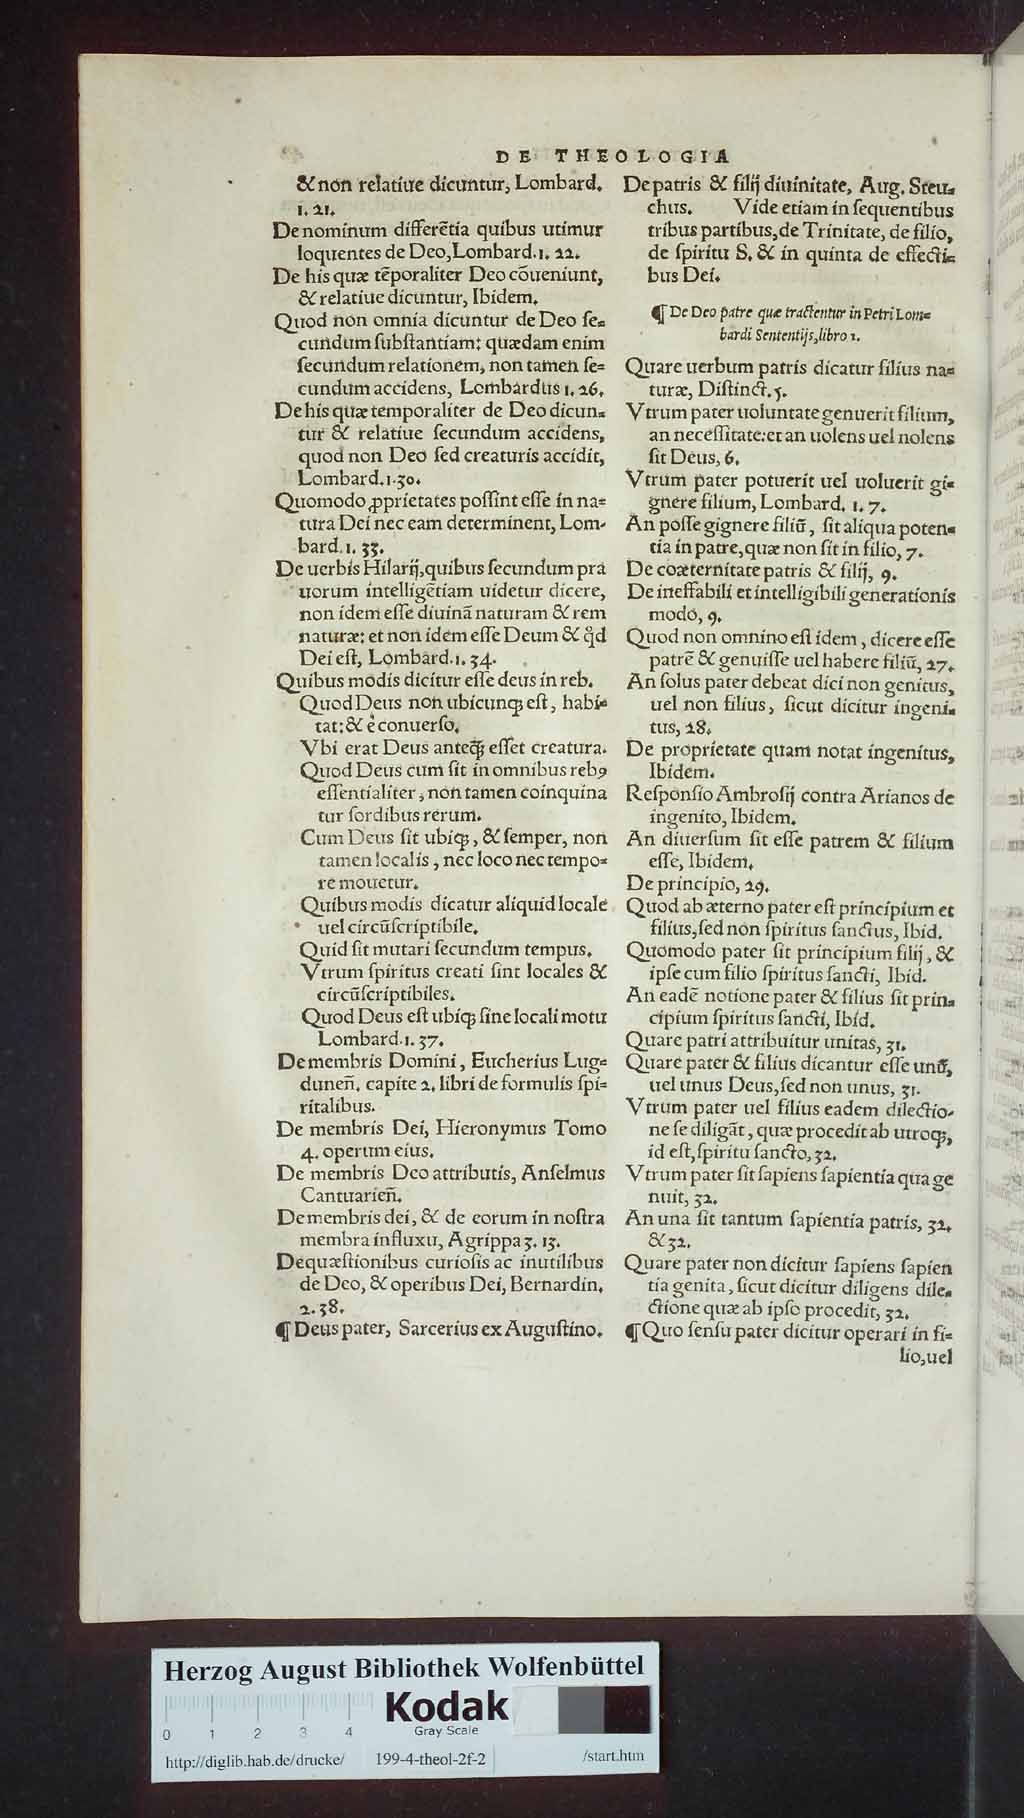 DE THEOLOGIA
& non relatiue dicuntur, Lombard.
1. 21.
De nominum differẽtia quibus utimur
loquentes de Deo, Lombard. 1. 22.
De his quæ tẽporaliter Deo cõueniunt,
& relatiue dicuntur, Ibidem.
Quod non omnia dicuntur de Deo ſe=
cundum ſubſtantiam: quædam enim
ſecundum relationem, non tamen ſe=
cundum accidens, Lombardus 1. 26.
De his quæ temporaliter de Deo dicun=
tur & relatiue ſecundum accidens,
quod non Deo ſed creaturis accidit,
Lombard. 1. 30.
Quomodo ꝓprietates poſſint eſſe in na=
tura Dei nec eam determinent, Lom-
bard. 1. 33.
De uerbis Hilarij, quibus ſecundum pra
uorum intelligẽtiam uidetur dicere,
non idem eſſe diuinã naturam & rem
naturæ: et non idem eſſe Deum & qͥd
Dei eſt, Lombard. 1. 34.
Quibus modis dicitur eſſe deus in reb.
Quod Deus non ubicunqꝫ eſt, habi=
tat: & ècõuerſo.
Vbi erat Deus anteqꝫ eſſet creatura.
Quod Deus cum ſit in omnibus rebꝰ
eſſentialiter, non tamen coinquina
tur ſordibus rerum.
Cum Deus ſit ubiqꝫ, & ſemper, non
tamen localis, nec loco nec tempo=
re mouetur.
Quibus modis dicatur aliquid locale
uel circũſcriptibile.
Quid ſit mutari ſecundum tempus.
Vtrum ſpiritus creati ſint locales &
circũſcriptibiles.
Quod Deus eſt ubiqꝫ ſine locali motu
Lombard. 1. 37.
De membris Domini, Eucherius Lug=
duneñ. capite 2. libri de formulis ſpi=
ritalibus.
De membris Dei, Hieronymus Tomo
4. operum eius.
De membris Deo attributis, Anſelmus
Cantuarieñ.
De membris dei, & de eorum in noſtra
membra influxu, Agrippa 3. 13.
De quæſtionibus curioſis ac inutilibus
de Deo, & operibus Dei, Bernardin.
2. 38.
¶ Deus pater, Sarcerius ex Auguſtino.
De patris & filij diuinitate, Aug. Steu=
chus. Vide etiam in ſequentibus
tribus partibus, de Trinitate, de filio,
de ſpiritu S. & in quinta de effecti=
bus Dei.
¶ De Deo patre quæ tractentur in Petri Lom=
bardi Sententijs, libro 1.
Quare uerbum patris dicatur filius na=
turæ, Diſtinct. 5.
Vtrum pater uoluntate genuerit filium,
an neceſſitate: et an uolens uel nolens
ſit Deus, 6.
Vtrum pater potuerit uel uoluerit gi=
gnere filium, Lombard. 1. 7.
An poſſe gignere filiũ, ſit aliqua poten=
tia in patre, quæ non ſit in filio, 7.
De coæternitate patris & filij, 9.
De ineffabili et intelligibili generationis
modo, 9.
Quod non omnino eſt idem, dicere eſſe
patrẽ & genuiſſe uel habere filiũ, 27.
An ſolus pater debeat dici non genitus,
uel non filius, ſicut dicitur ingeni=
tus, 28.
De proprietate quam notat ingenitus,
Ibidem.
Reſponſio Ambroſij contra Arianos de
ingenito, Ibidem.
An diuerſum ſit eſſe patrem & filium
eſſe, Ibidem.
De principio, 29.
Quod ab æterno pater eſt principium et
filius, ſed non ſpiritus ſanctus, Ibid.
Quomodo pater ſit principium filij, &
ipſe cum filio ſpiritus ſancti, Ibid.
An eadẽ notione pater & filius ſit prin=
cipium ſpiritus ſancti, Ibid.
Quare patri attribuitur unitas, 31.
Quare pater & filius dicantur eſſe unũ,
uel unus Deus, ſed non unus, 31.
Vtrum pater uel filius eadem dilectio-
ne ſe diligãt, quæ procedit ab utroqꝫ,
id eſt, ſpiritu ſancto, 32.
Vtrum pater ſit ſapiens ſapientia qua ge
nuit, 32.
An una ſit tantum ſapientia patris, 32.
& 32.
Quare pater non dicitur ſapiens ſapien
tia genita, ſicut dicitur diligens dile=
ctione quæ ab ipſo procedit, 32.
¶ Quo ſenſu pater dicitur operari in fi=
lio, uel
Herzog August Bibliothek Wolfenbüttel
0 1 2 3 4
Kodak
Gray Scale
http://diglib.hab.de/drucke/ 199-4-theol-2f-2 /start.htm